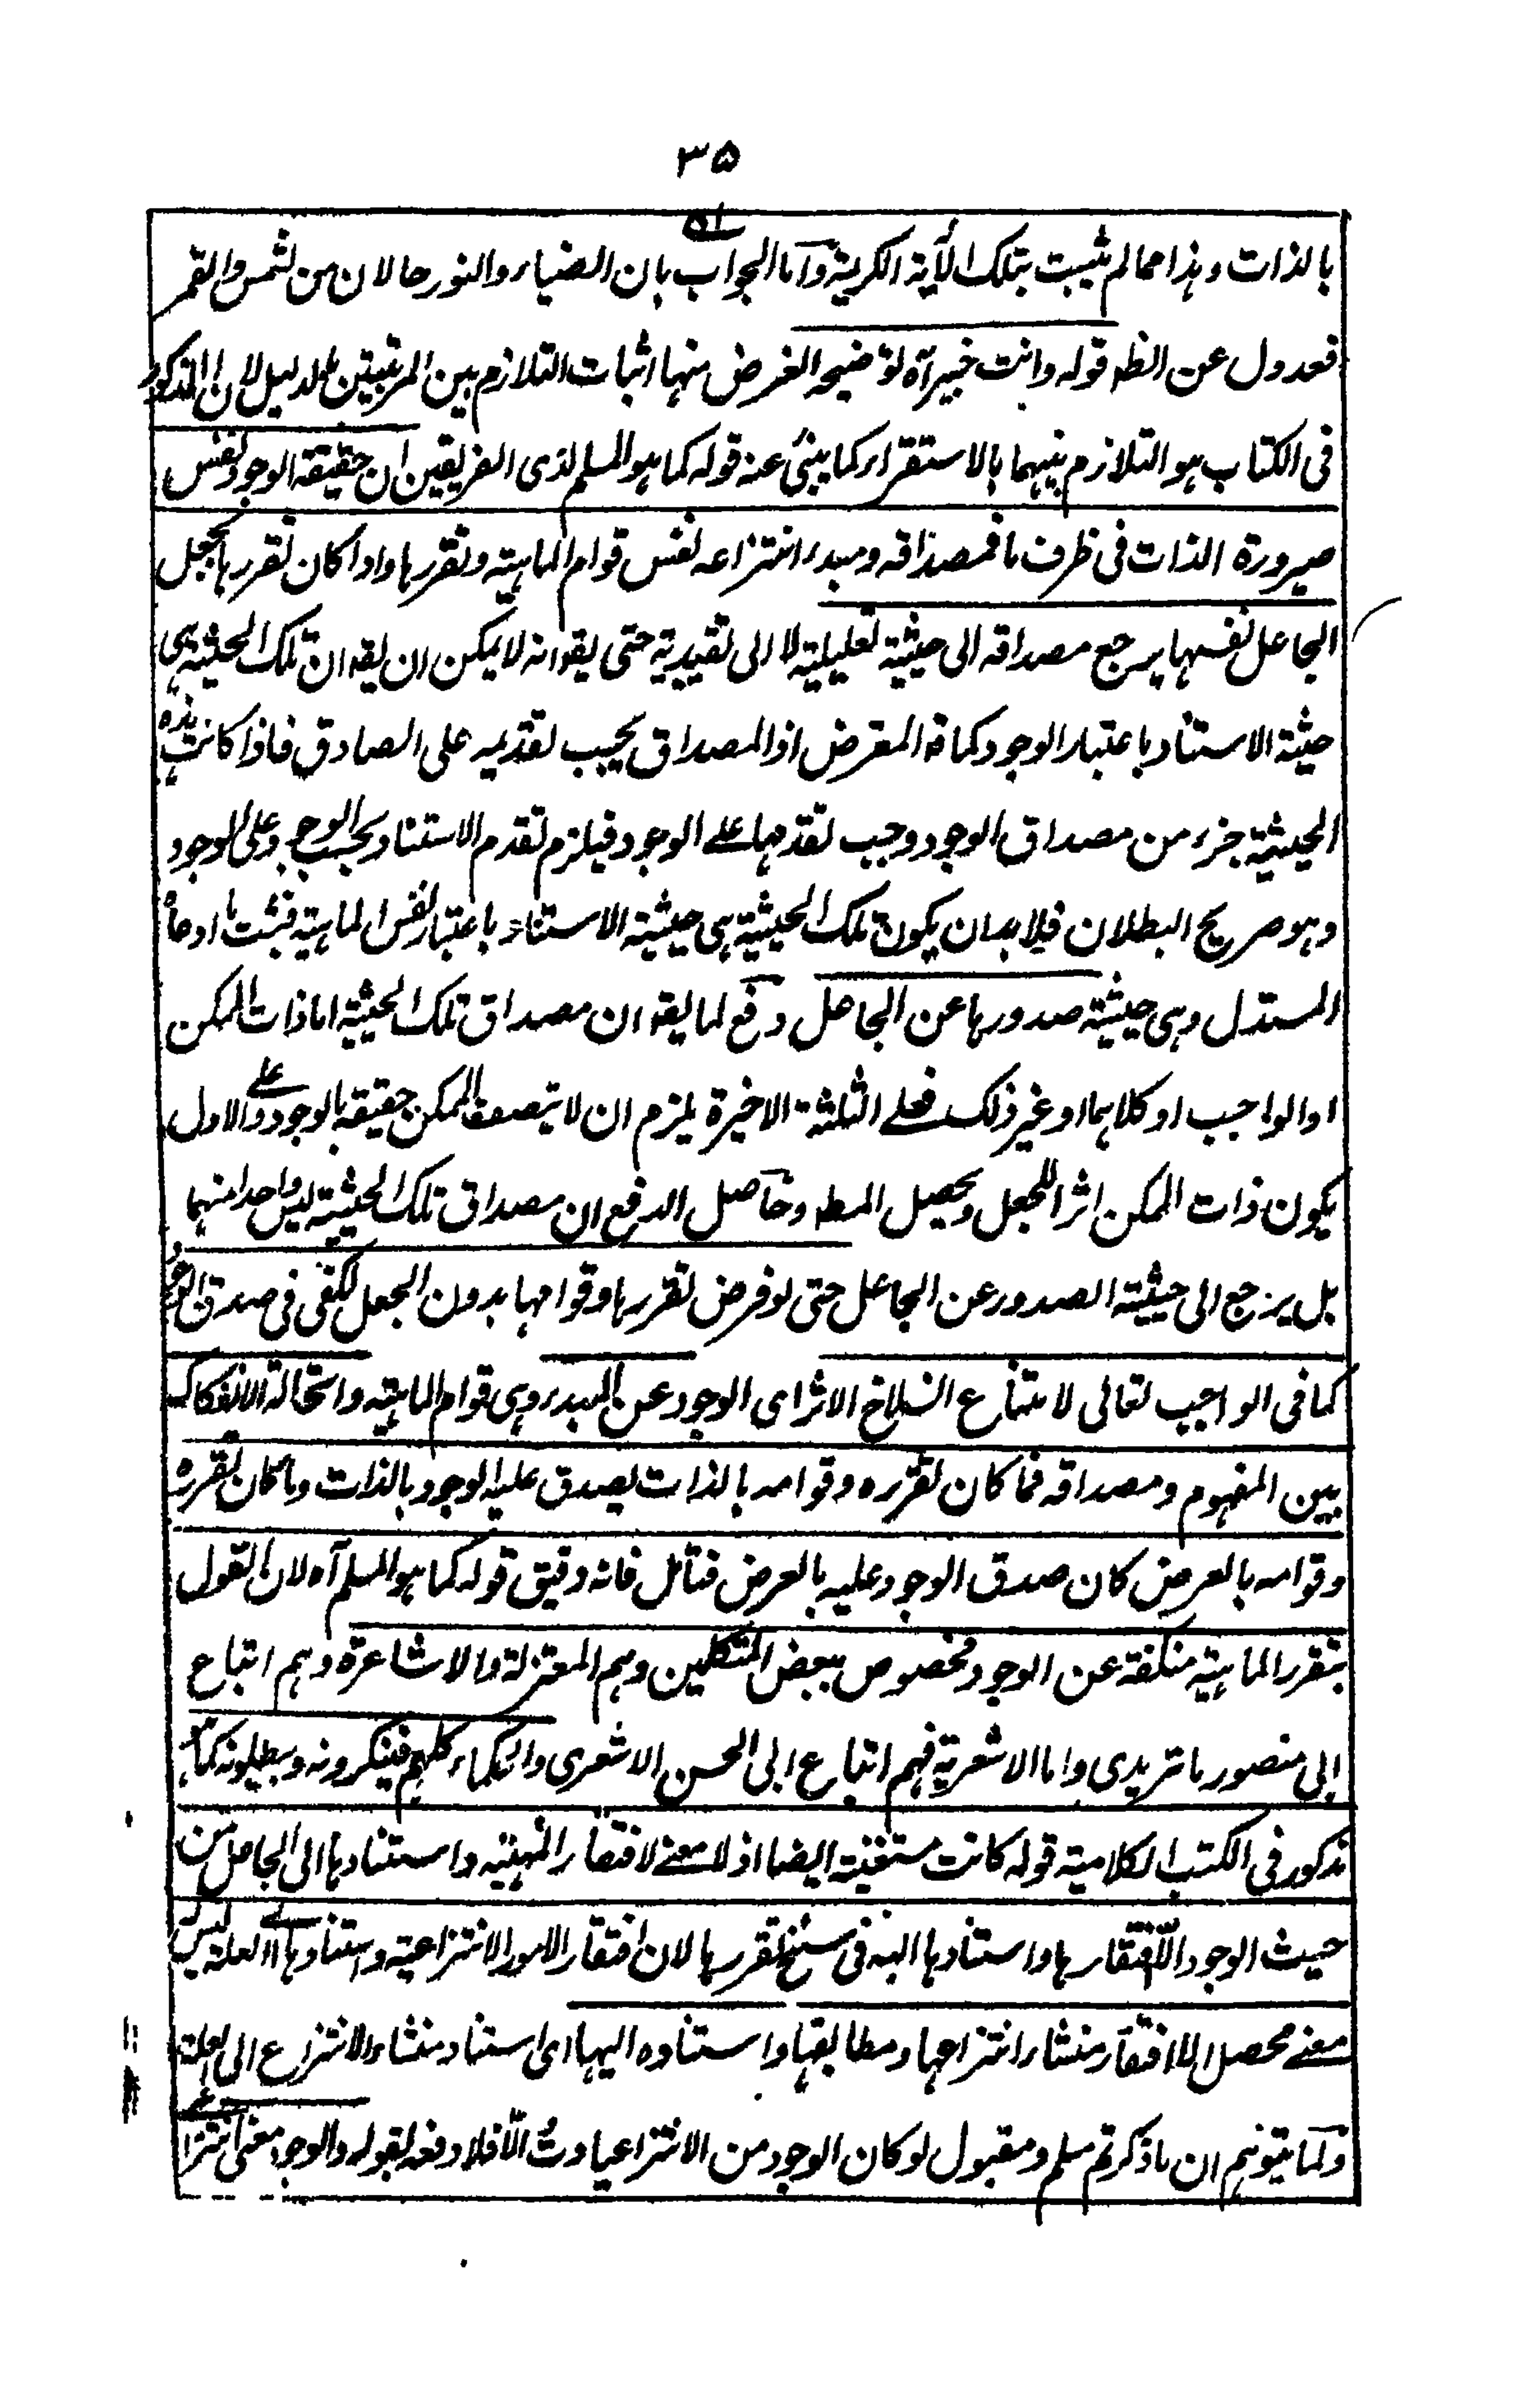 ٣٥
بالذات وہذا مما لم یثبت بتلک الآیة الکریمة واما الجواب بان الضیاء والنور حالان من الشمس والقمر
فعدول عن الظہ قوله وانت خبیر آه توضیحه الغرض منہا اثبات التلازم بین المرتبتین بالدلیل لان المذکور
فی الکتاب ہو التلازم بینہما بالاستقراء کما ینبئ عنہ قوله کما ہو المسلم لدی الفریقین ان حقیقة الوجود نفس
صیرورة الذات فی ظرف ما فمصداقه ومبدء انتزاعه نفس قوام الماہیة وتقررہا واذا کان تقررہا بجعل
الجاعل نفسہا یرجع مصداقه الی حیثیة تعلیلیة لا الی تقییدیة حتی یقو انه لا یمکن ان یقہ ان تلک الحیثیة ہی
حیثیة الاستناد باعتبار الوجود کما قہ المعترض اذ المصداق یجب تقدیمه علی الصادق فاذا کانت ہذه
الحیثیة جزء من مصداق الوجود وجب تقدمہا علے الوجود فیلزم تقدم الاستناد بحسب الوجود علی الوجود
وہو صریح البطلان فلا بد ان یکون تلک الحیثیة ہی حیثیة الاستناد باعتبار نفس الماہیة فیثبت ما ادعاه
المستدل وہی حیثیة صدورہا عن الجاعل دفع لما یقہ ان مصداق تلک الحیثیة اما ذات الممکن
او الواجب او کلاہما او غیر ذلک فعلے الثلثة الاخیرة یلزم ان لا یتصف الممکن حقیقة بالوجود وعلے الاول
یکون ذات الممکن اثرا للجعل ویحصل المطہ وحاصل الدفع ان مصداق تلک الحیثیة لیس واحدا منہما
بل یرجع الی حیثیة الصدور عن الجاعل حتی لو فرض تقررہا وقوامہا بدون الجعل لکفی فی صدق الوجود
کما فی الواجب تعالی لامتناع انسلاخ الاثر ای الوجود عن المبدء وہی قوام الماہیة واستحالة الانفکاک
بین المفہوم ومصداقه فما کان تقرره وقوامه بالذات یصدق علیه الوجود بالذات وما کان تقرره
وقوامه بالعرض کان صدق الوجود علیه بالعرض فتأمل فانه دقیق قوله کما ہو المسلم آه لان القول
بتقرر الماہیة منکفة عن الوجود مخصوص ببعض المتکلمین وہم المعتزلة والاشاعرة وہم اتباع
ابی منصور ماتریدی واما الاشعریة فہم اتباع ابی الحسن الاشعری والحکماء کلہم فینکرونه ویبطلونه کما ہو
مذکور فی الکتب الکلامیة قوله کانت مستغنیة ایضا اذ لا معنے لافتقار المہیة واستنادہا الی الجاعل من
حیث الوجود الا افتقارہا واستنادہا الیه فی سنخ تقررہا لان افتقار الامور الانتزاعیة واستنادہا الے العلة لیس له
معنے محصل الا افتقار منشاء انتزاعہا ومطابقہا واستناده الیہا ای استناد منشاء الانتزاع الی العلة
ولما یتوہم ان ما ذکرتم مسلم ومقبول لو کان الوجود من الانتزاعیات والا فلا دفعه بقوله والوجود معنی انتزاعے